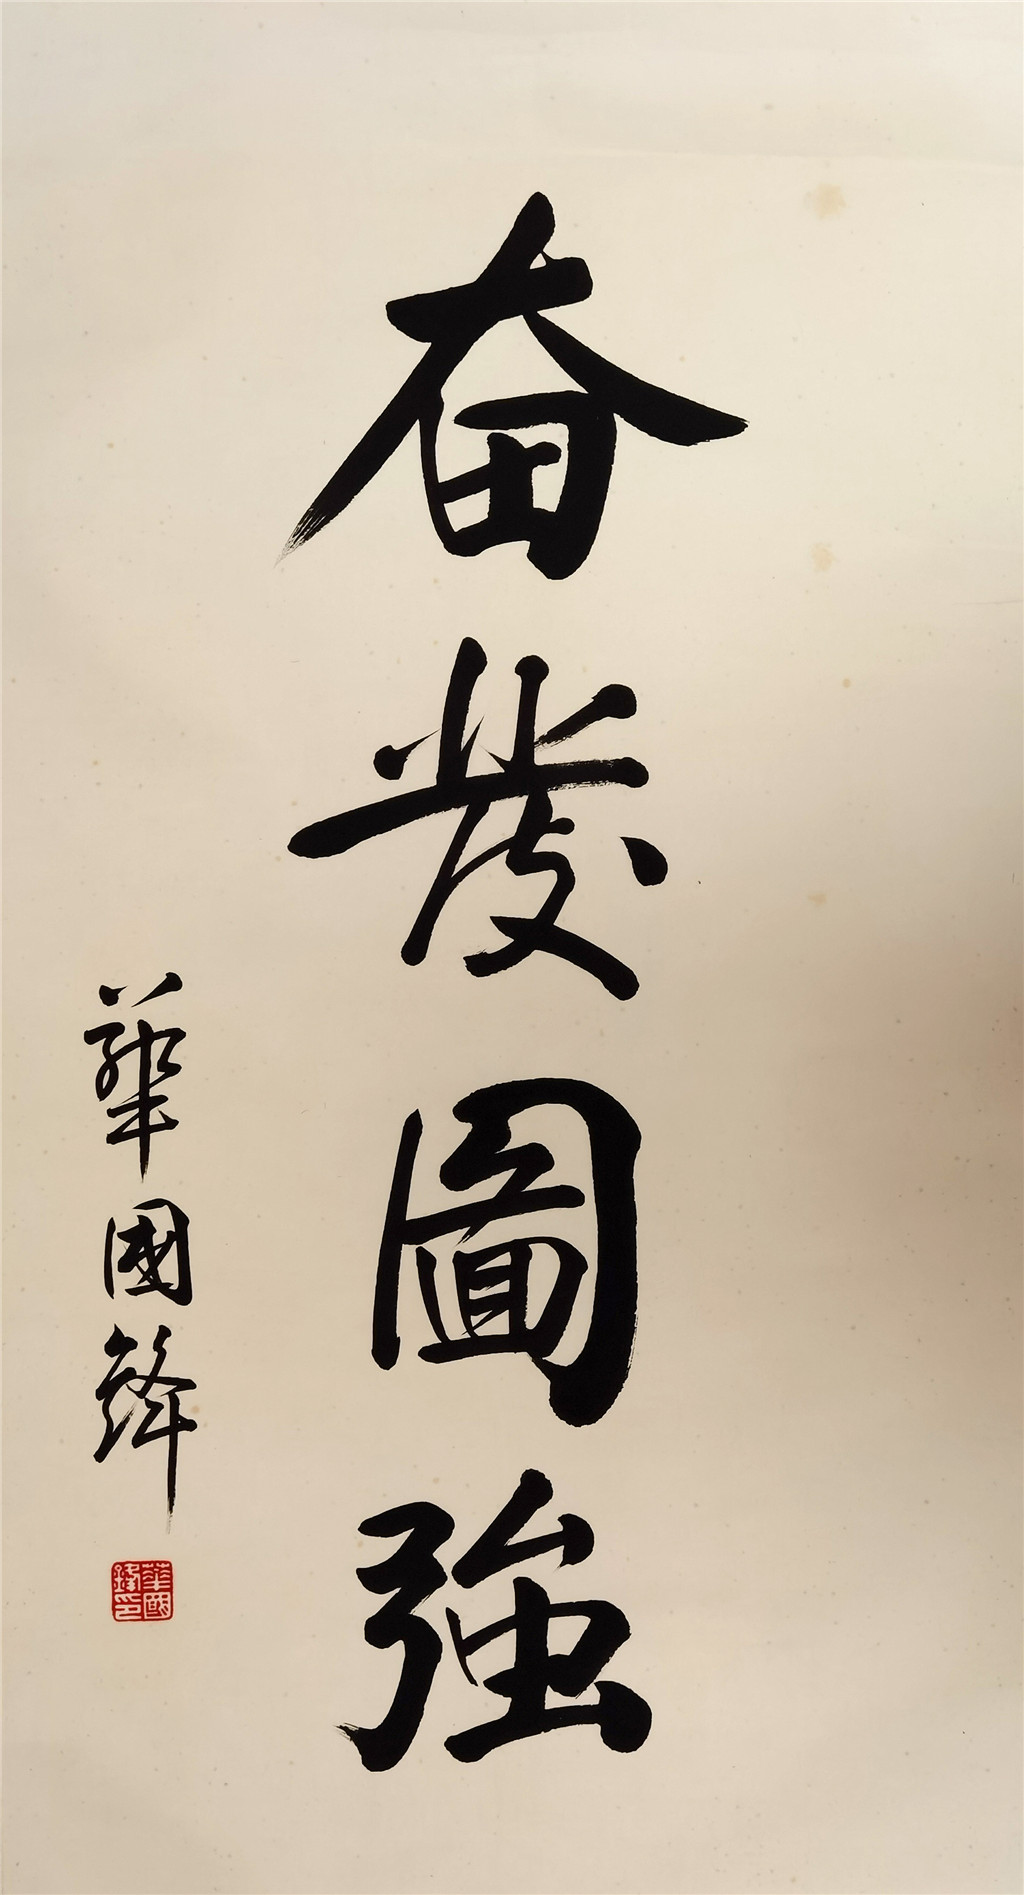 奋發圖強
華國鋒
華國鋒印